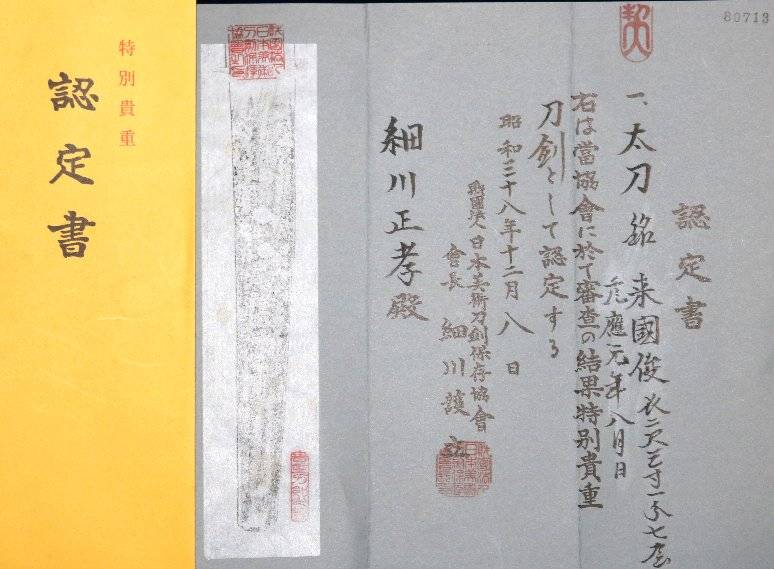 特別貴重
認定書
80713
認定書
一、太刀 銘 来國俊 長二尺三寸一分七厘
元應元年八月日
右は當協會に於て審査の結果特別貴重
刀剣として認定する
昭和三十八年十二月八日
財團法人日本美術刀剣保存協會
會長 細川護立
細川正孝殿